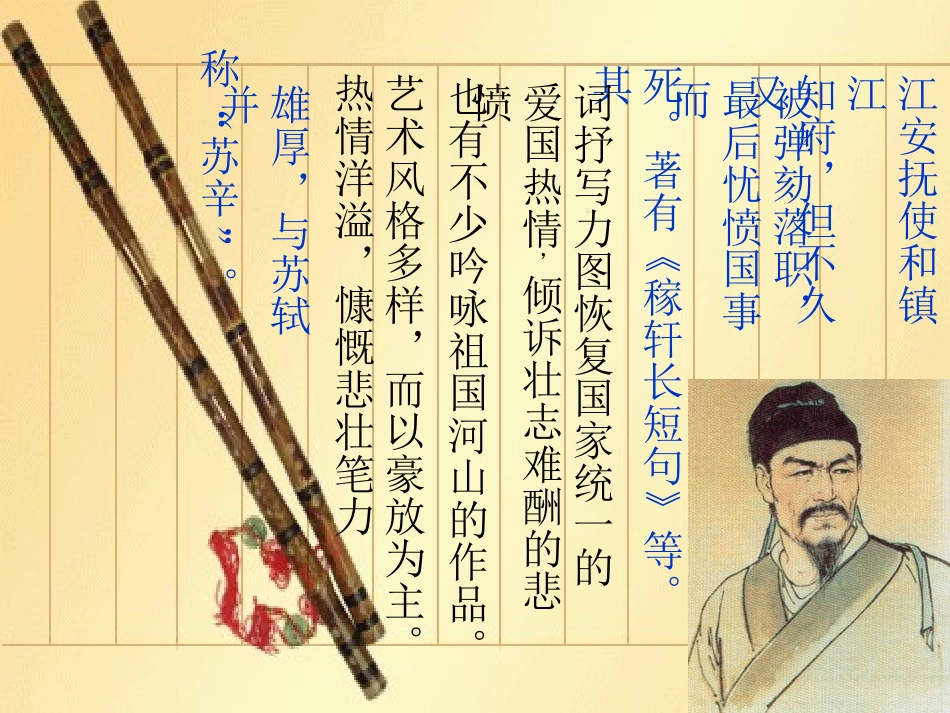 江安抚使和镇
江
知府，但不久
又
被弹劾落职，
最后忧愤国事
而
死。著有《稼轩长短句》等。
其
词抒写力图恢复国家统一的
爱国热情，倾诉壮志难酬的悲
愤
也有不少吟咏祖国河山的作品。
艺术风格多样，而以豪放为主。
热情洋溢，慷慨悲壮笔力
雄厚，与苏轼
并
称“苏辛”。